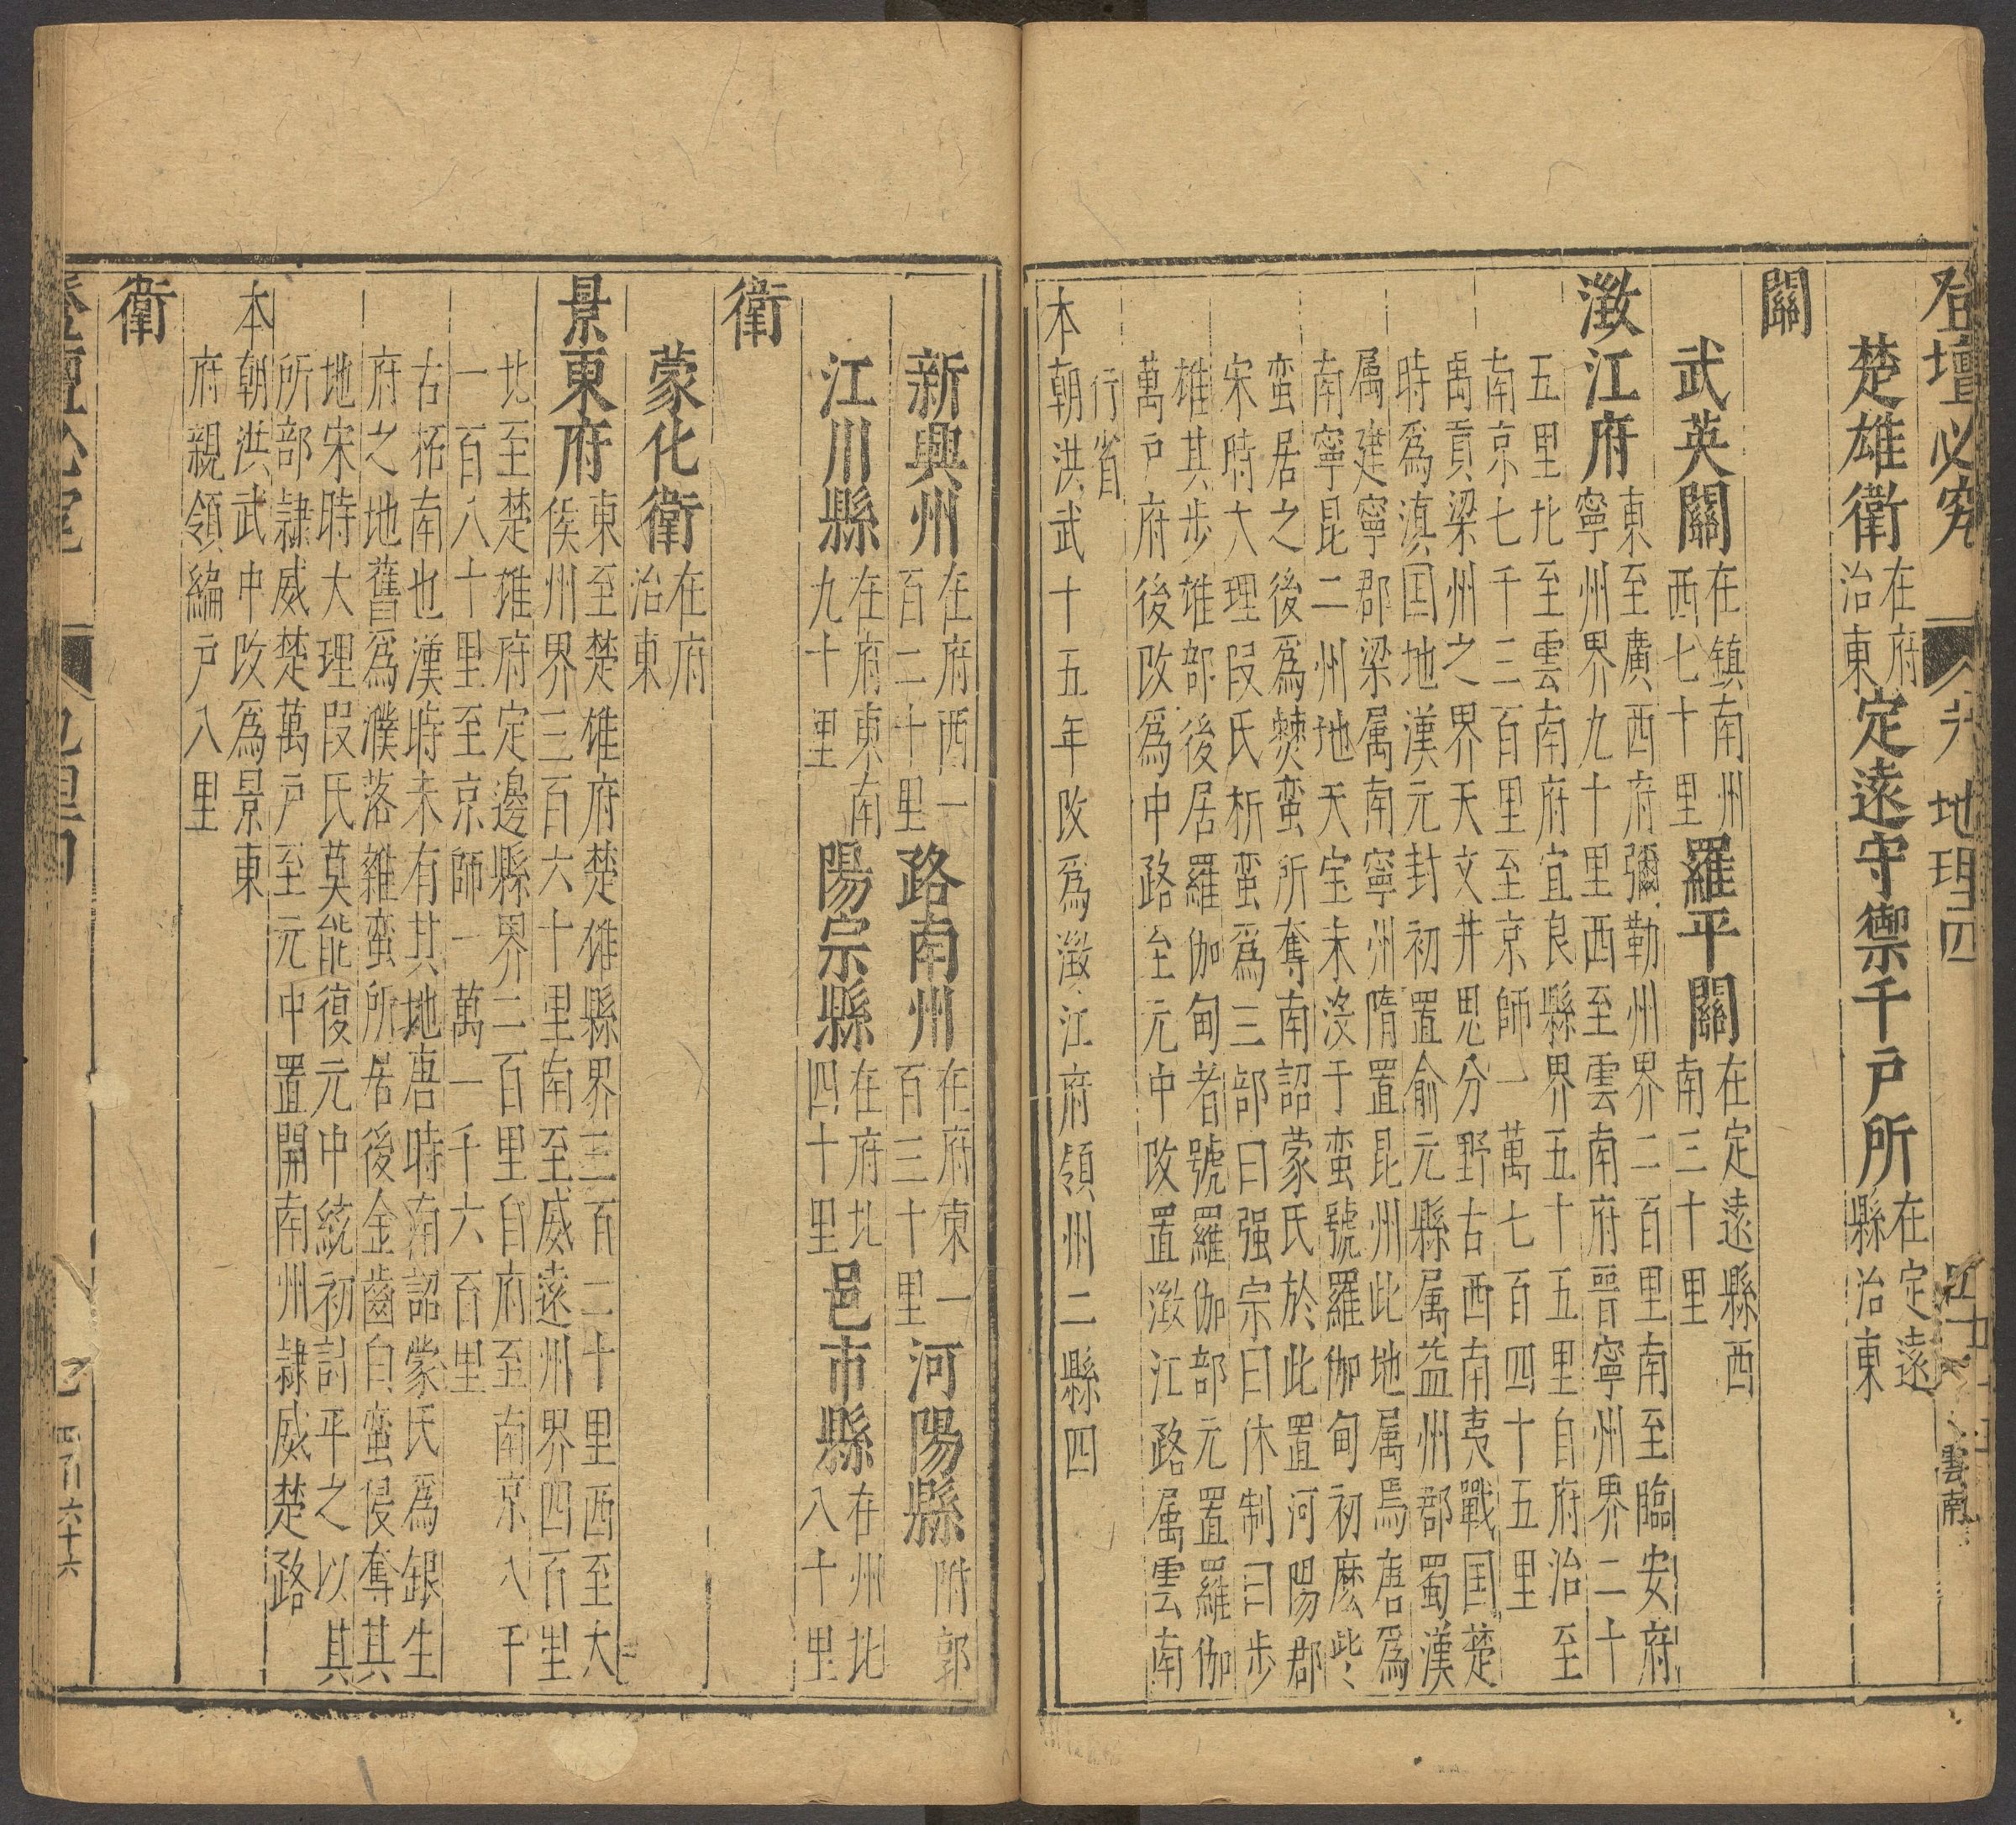 登壇必究 地理四 雲南
楚雄衛在府治東定遠守禦千户所在定遠縣治東
關
武英關在鎮南州西七十里羅平關在定遠縣西南三十里
澂江府東至廣西府彌勒州界二百里南至臨安府
寧州界九十里西至雲南府晋寧州界二十
五里北至雲南府宜良縣界五十五里自府治至
南京七千三百里至京師一萬七百四十五里
禹貢梁州之界天文井鬼分野古西南夷戰国楚
時爲滇国地漢元封初置俞元縣属益州郡蜀漢
属建寧郡梁属南寧州隋置昆州此地属焉唐爲
南寧昆二州地天宝末没于蛮號羅伽甸初麽些
蛮居之後爲㸑蛮所奪南詔蒙氏於此置河陽郡
宋時大理段氏析蛮爲三部曰强宗曰休制曰步
雄其步雄部後居羅伽甸者號羅伽部元置羅伽
萬户府後改爲中路至元中改置澂江路属雲南
行省
本朝洪武十五年改爲澂江府領州二縣四
新興州在府西一百二十里路南州在府東一百三十里河陽縣附郭
江川縣在府東南九十里陽宗縣在府北四十里邑市縣在州北八十里
衛
蒙化衛在府治東
景東府東至楚雄府楚雄縣界三百二十里西至大
侯州界三百六十里南至威遠州界四百里
北至楚雄府定邊縣界二百里自府至南京八千
一百八十里至京師一萬一千六百里
古柘南也漢時未有其地唐時南詔蒙氏爲銀生
府之地舊爲濮落雜蛮所居後金齒白蛮侵奪其
地宋時大理段氏莫能復元中統初討平之以其
所部隷威楚萬户至元中置開南州隷威楚路
本朝洪武中改爲景東
府親領編户八里
衛
四百六十六